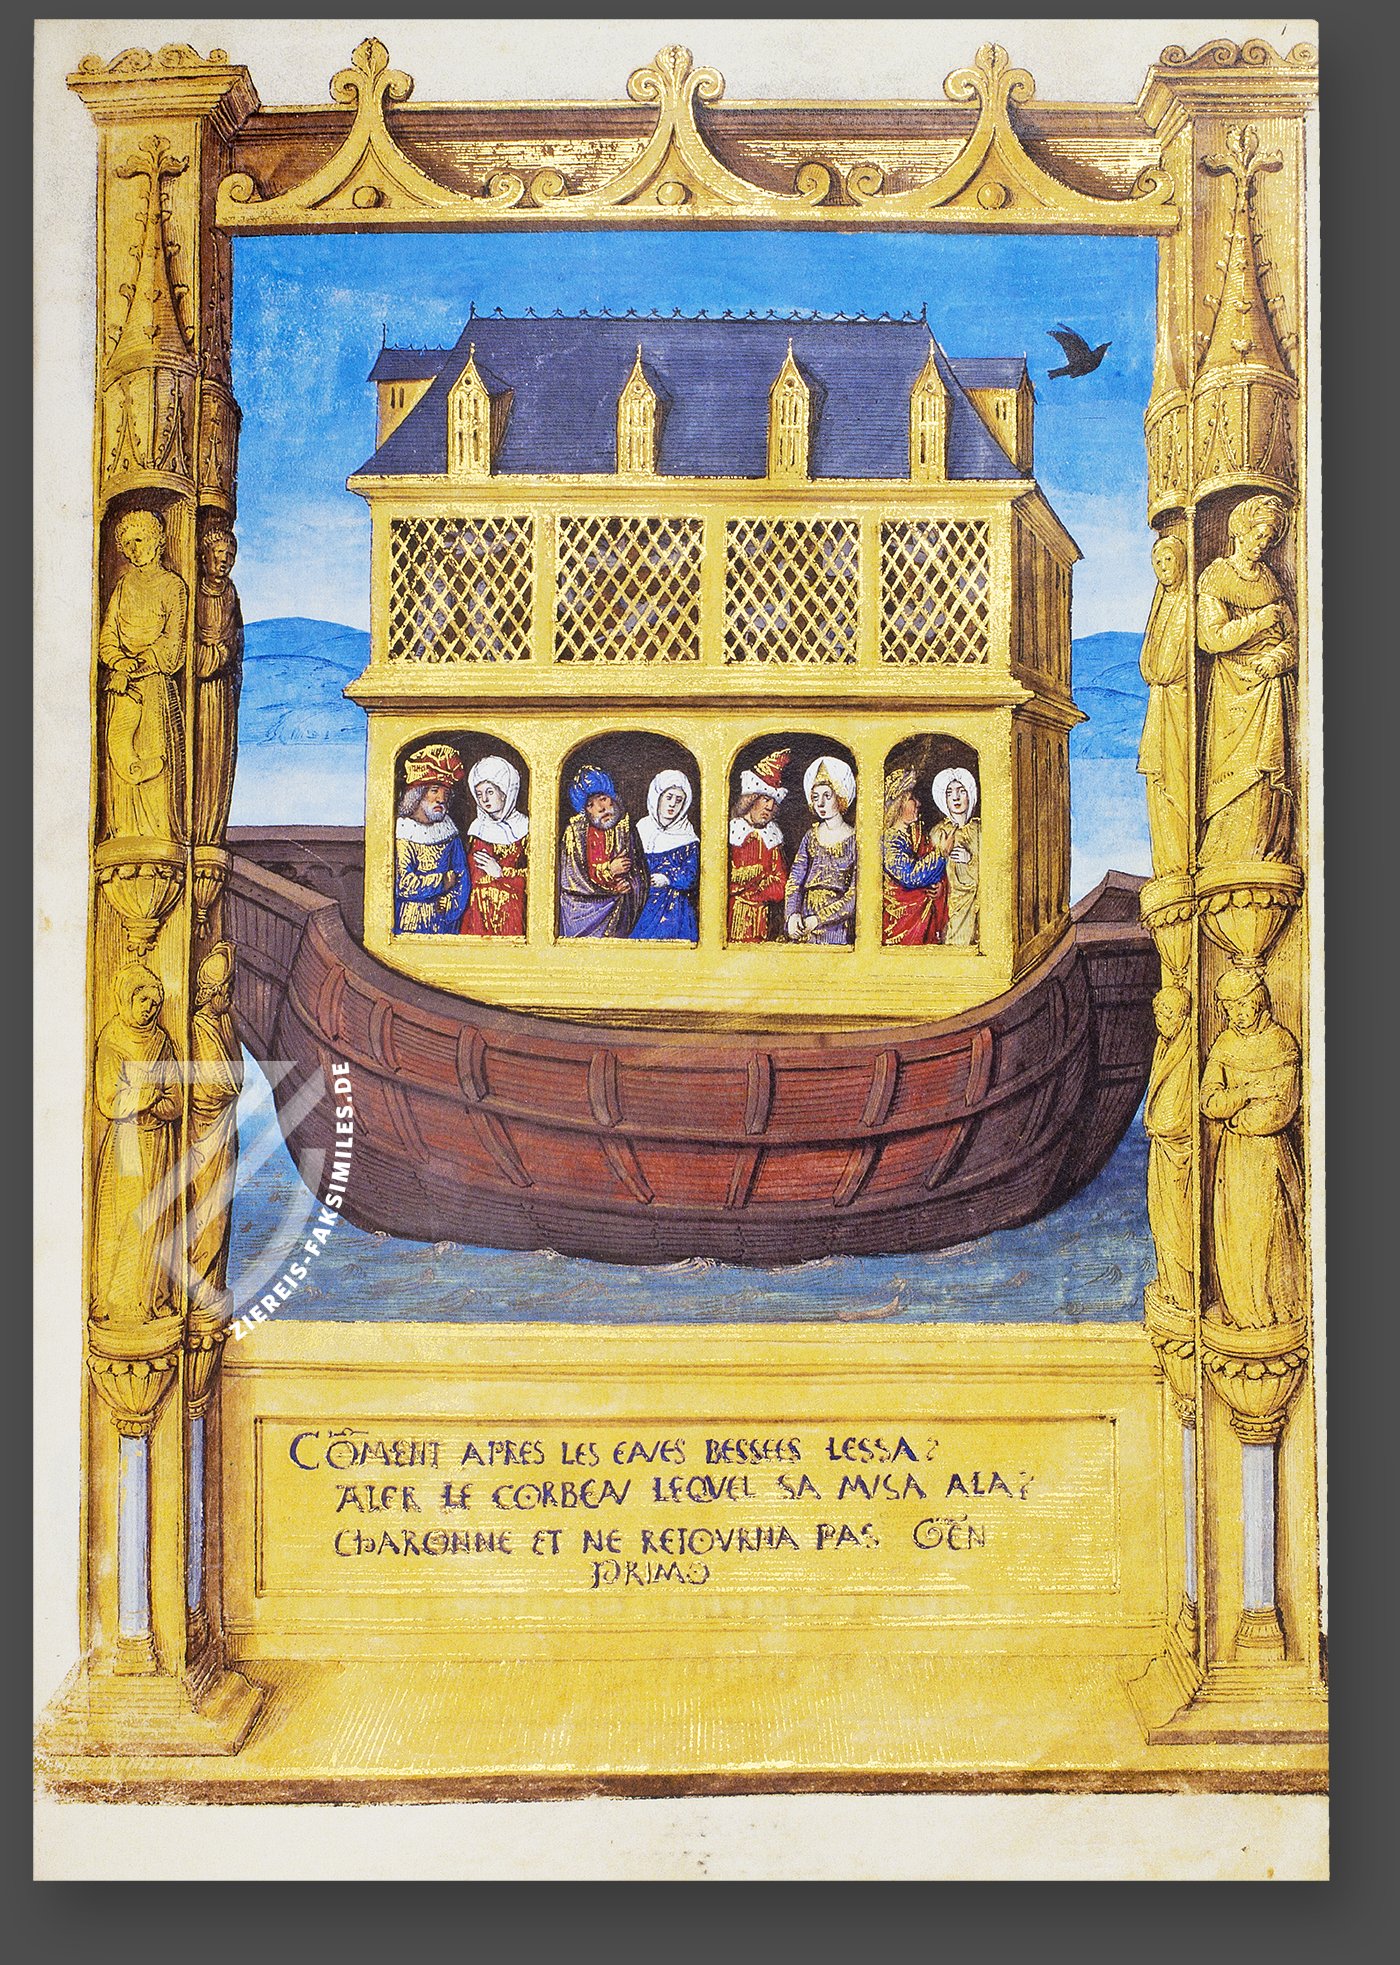 CŌMENT APRES LES EAVES BESSEES LESSA?
ALER LE CORBEAV LEQVEL SA MISA ALA?
CHARONNE ET NE RETOVRNA PAS GEN
PRIMO
ZIEREIS-FAKSIMILES.DE